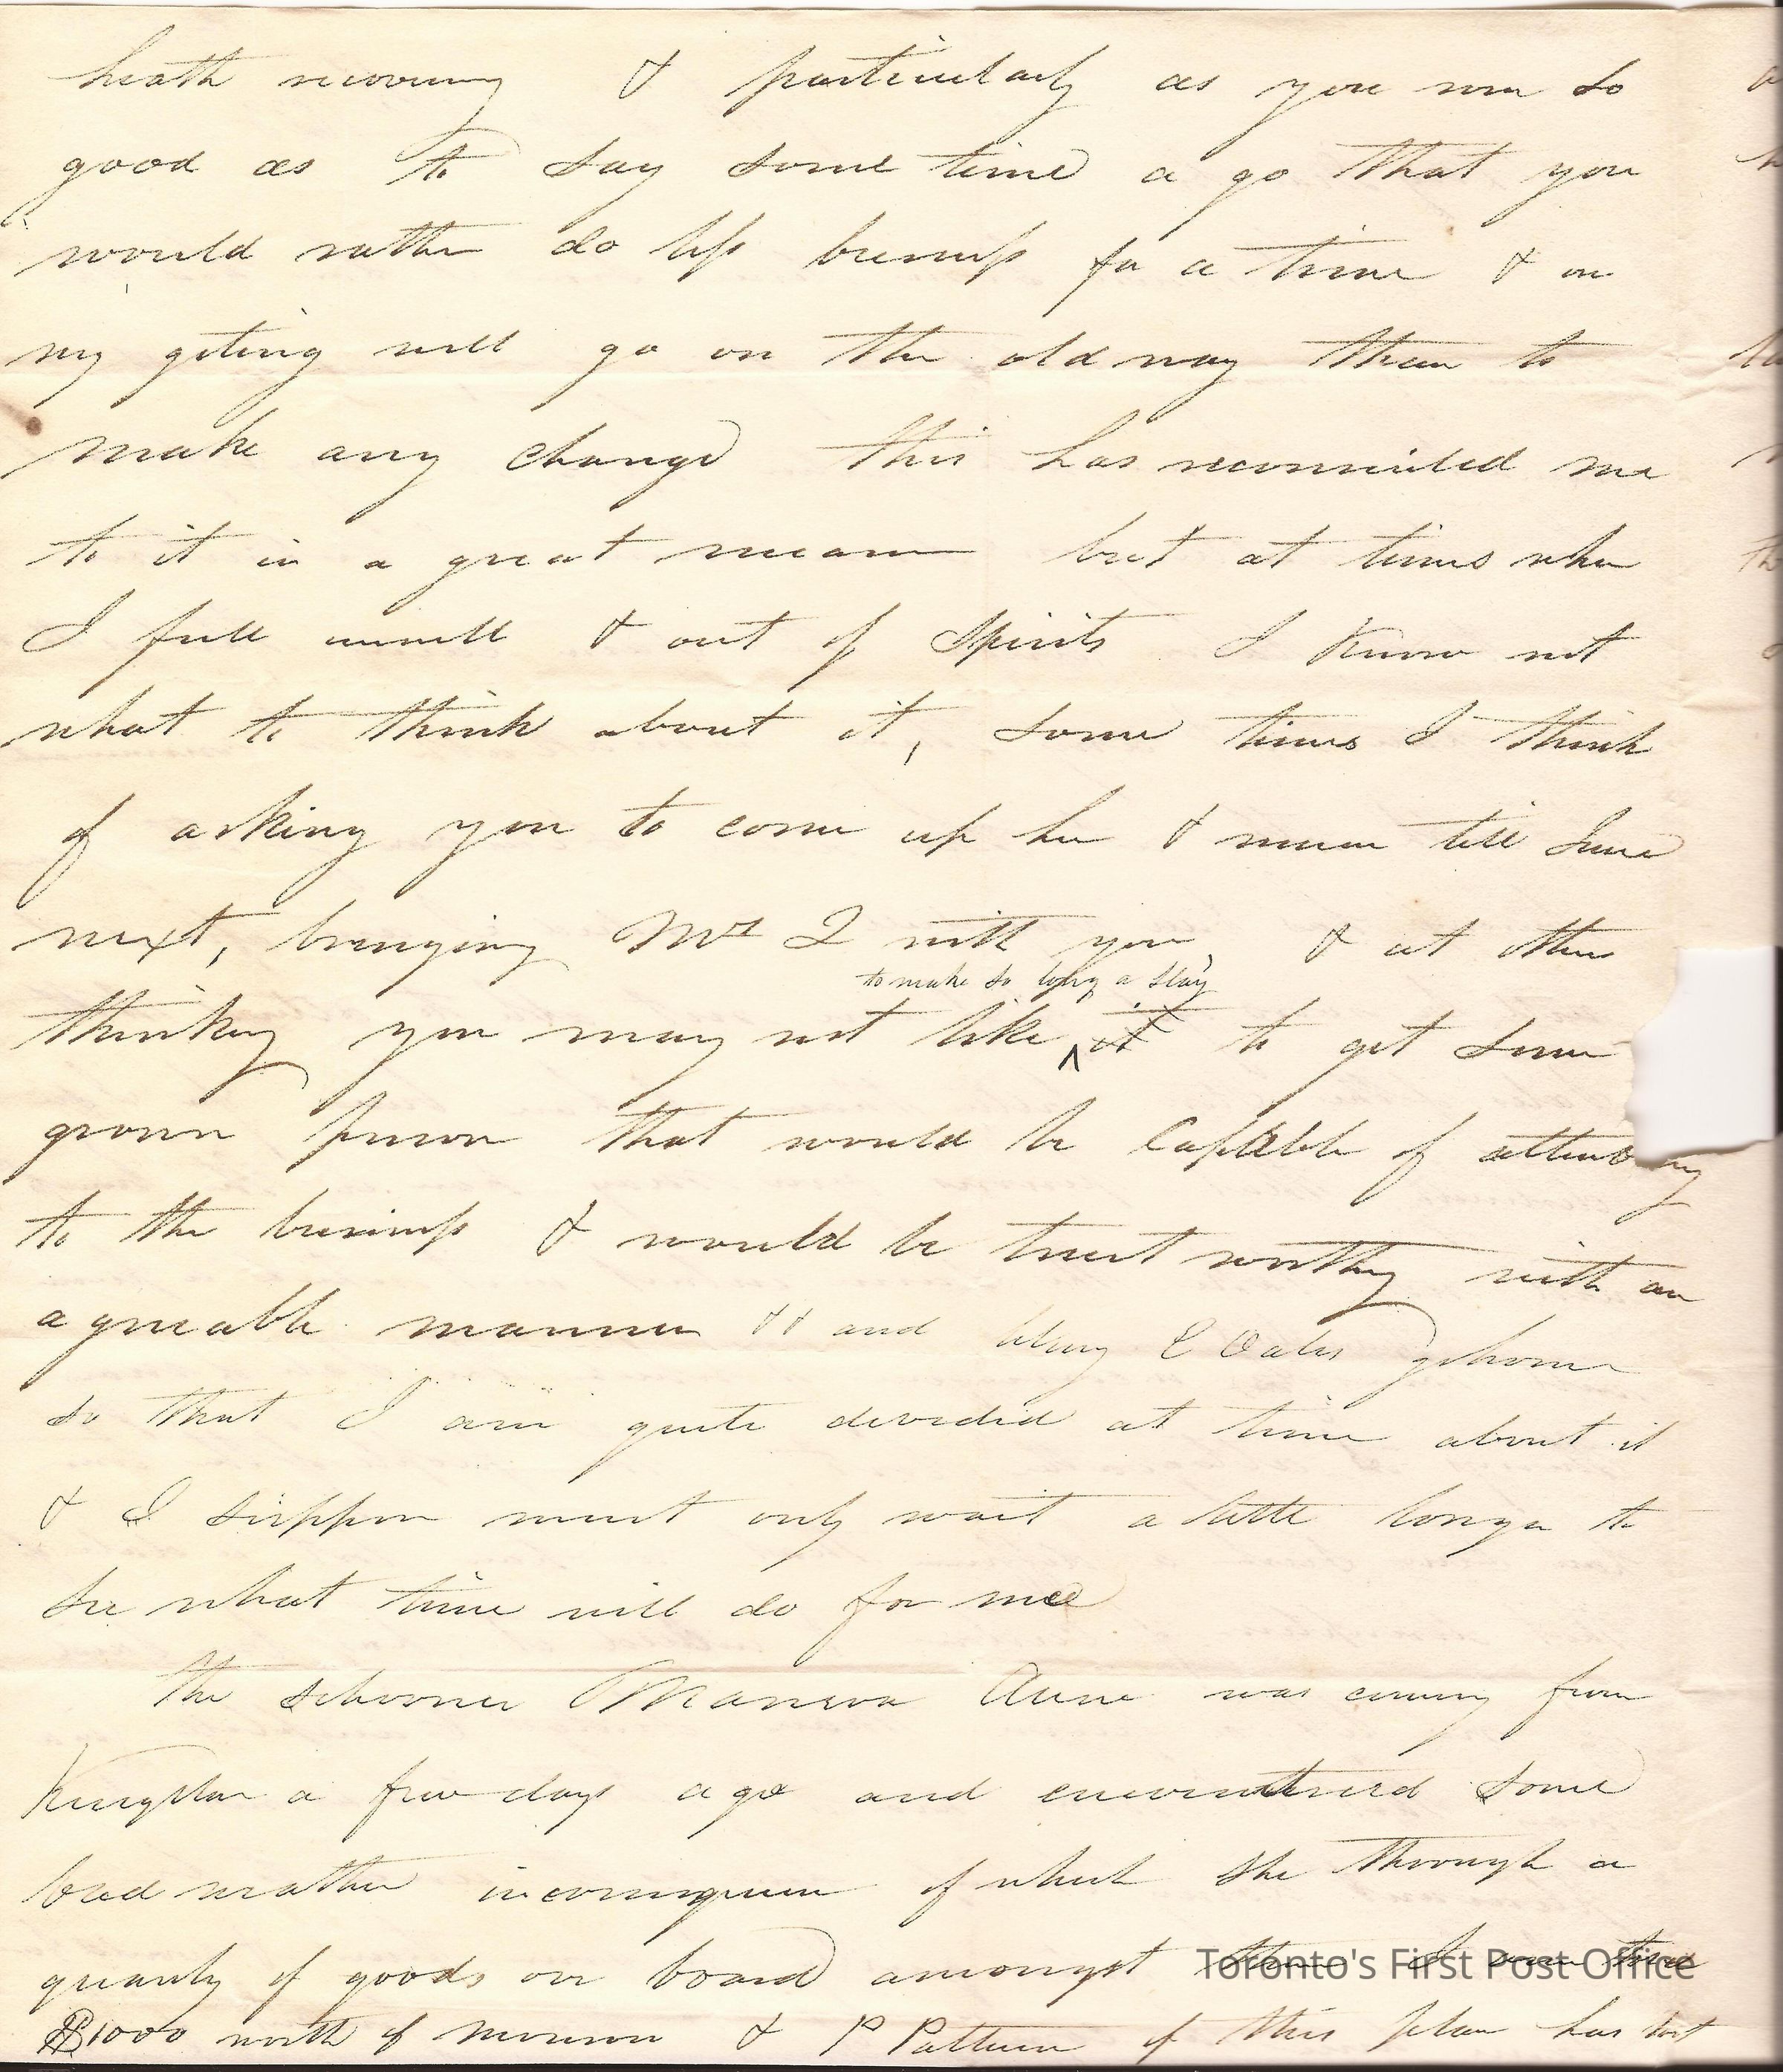 heath recovering & particularly as you were so
good as to say some time a go that you
would rather do less business for a time & on
my geting well go on the old way than to
make any change this has reconciled me
to it in a great measure but at times when
I feell unwell & out of Spirits I Know not
what to think about it, some times I think
of asking you to come up here & remain till June
next, bringing Mrs I with you & at others
to make so long a stay
thinking you may not like it to get some
grown person that would be Capable of attending
to the business & would be trust worthy with an
agreeable manner && and bring E Oates home
so that I am quite divided at time about it
& I suppose must only wait a little longer to
see what time will do for mee
the schooner Anne was coming from
Kingston a few days ago and encountered some
bad weather in consequence of which she through a
quanty of goods over board amongst them I
$1000 worth of & P Patterson of this place has lost
Toronto's First Post Office